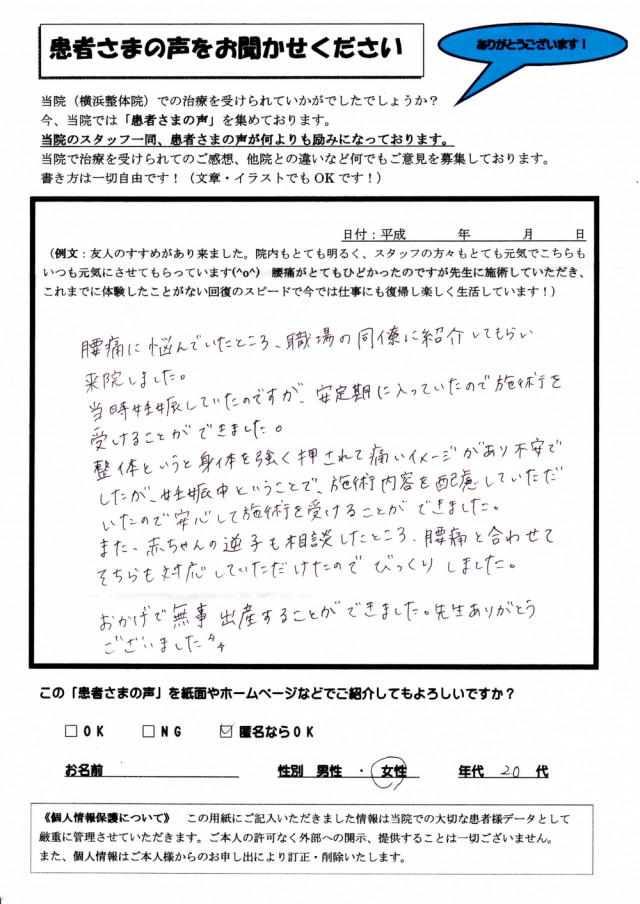 患者さまの声をお聞かせください
ありがとうございます！
当院（横浜整体院）での治療を受けられていかがでしたでしょうか？
今、当院では「患者さまの声」を集めております。
当院のスタッフ一同、患者さまの声が何よりも励みになっております。
当院で治療を受けられてのご感想、他院との違いなど何でもご意見を募集しております。
書き方は一切自由です！（文章・イラストでもOKです！）
日付：平成　　　年　　　月　　　日
（例文：友人のすすめがあり来ました。院内もとても明るく、スタッフの方々もとても元気でこちらも
いつも元気にさせてもらっています(^o^)　腰痛がとてもひどかったのですが先生に施術していただき、
これまでに体験したことがない回復のスピードで今では仕事にも復帰し楽しく生活しています！）
腰痛に悩んでいたところ、職場の同僚に紹介してもらい
来院しました。
当時妊娠していたのですが、安定期に入っていたので施術を
受けることができました。
整体というと身体を強く押されて痛いイメージがあり不安で
したが、妊娠中ということで、施術内容を配慮していただ
いたので安心して施術を受けることができました。
また、赤ちゃんの逆子も相談したところ、腰痛と合わせて
そちらも対応していただけたのでびっくりしました。
おかげで無事出産することができました。先生ありがとう
ございました
この「患者さまの声」を紙面やホームページなどでご紹介してもよろしいですか？
□OK　□NG　☑匿名ならOK
お名前　　　　　性別　男性　・　女性　　年代　20　代
《個人情報保護について》　この用紙にご記入いただきました情報は当院での大切な患者様データとして
厳重に管理させていただきます。ご本人の許可なく外部への開示、提供することは一切ございません。
また、個人情報はご本人様からのお申し出により訂正・削除いたします。